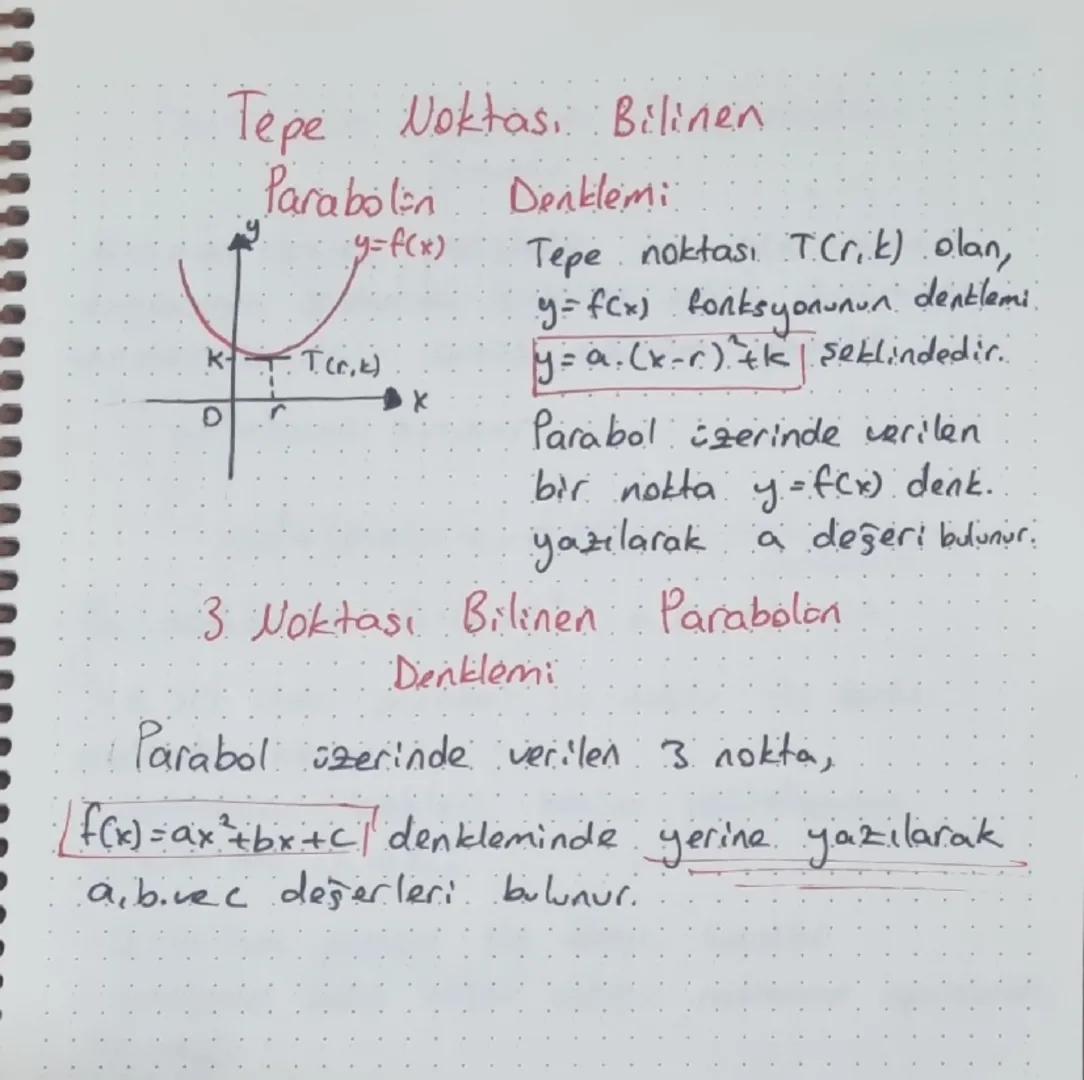 Tepe Noktası Bilinen
Parabolün Denklemi
y
y=f(x)
K
T(r,k)
O
r
x
Tepe noktası T(r,k) olan,
y=f(x) fonksyonunun denklemi
y=a.(x-r)²+k şeklindedir.
Parabol üzerinde verilen
bir nokta y=f(x) denk.
yazılarak a değeri bulunur.
3 Noktası Bilinen Parabolün
Denklemi
Parabol üzerinde verilen 3 nokta,
f(x)=ax²+bx+c denkleminde yerine yazılarak
a,b.ve c değerleri bulunur.